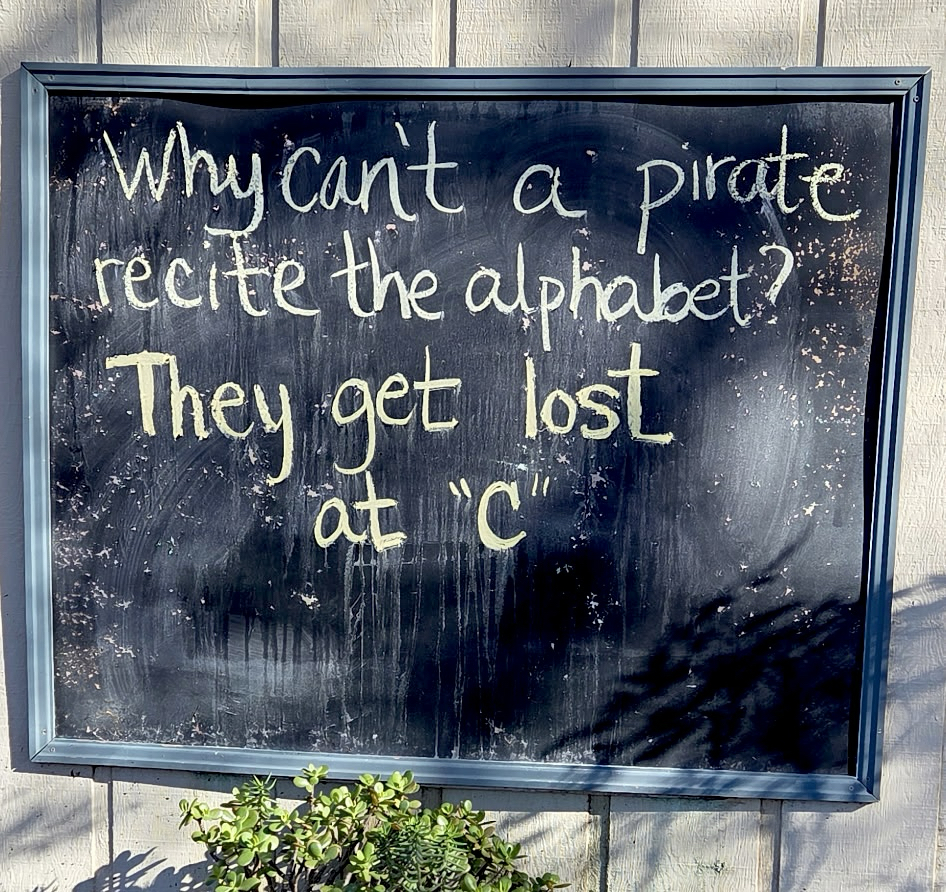 Why can't a pirate
recite the alphabet?
They get lost
at "C"